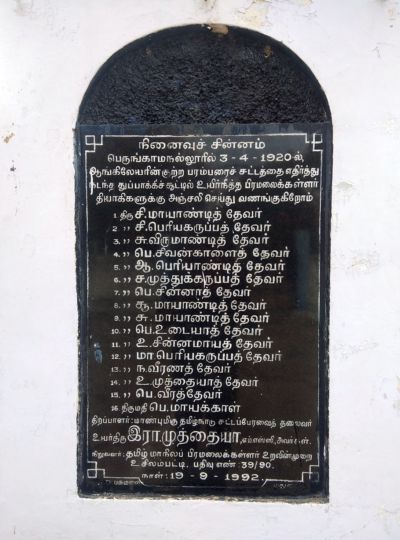 நினைவுச் சின்னம்
பெருங்காமநல்லூரில் 3-4-1920ல்,
ஆங்கிலேயரின் குற்ற பரம்பரைச் சட்டத்தை எதிர்த்து
நடந்த துப்பாக்கிச் சூட்டில் உயிர்நீத்த பிரமலைக்கள்ளர்
தியாகிகளுக்கு அஞ்சலி செய்து வணங்குகிறோம்
1. திரு சி.மாயாண்டித் தேவர்
2. ,, சி.பெரியகருப்பத் தேவர்
3. ,, சு.விருமாண்டித் தேவர்
4. ,, பெ.சிவன்காளைத் தேவர்
5. ,, ஆ.பெரியாண்டித் தேவர்
6. ,, ச.முத்துக்கருப்பத் தேவர்
7. ,, பெ.சின்னாத் தேவர்
8. ,, சூ.மாயாண்டித் தேவர்
9. ,, சு.மாயாண்டித் தேவர்
10. ,, பெ.உடையாத் தேவர்
11. ,, உ.சின்னமாயத் தேவர்
12. ,, மா.பெரியகருப்பத் தேவர்
13. ,, ந.வீரணத் தேவர்
14. ,, உ.முத்தையாத் தேவர்
15. ,, பெ.வீரத்தேவர்
16. திருமதி பெ.மாயக்காள்
திறப்பாளர்: மாண்புமிகு தமிழ்நாடு சட்டப்பேரவைத் தலைவர்
உயர்திரு இராமுத்தையா, எம்எஸ்ஸி, அவர்கள்.
நிறுவனர்: தமிழ் மாநிலப் பிரமலைக்கள்ளர் உறவின்முறை
உசிலம்பட்டி, பதிவு எண் 39/90.
நாள்: 19-9-1992.